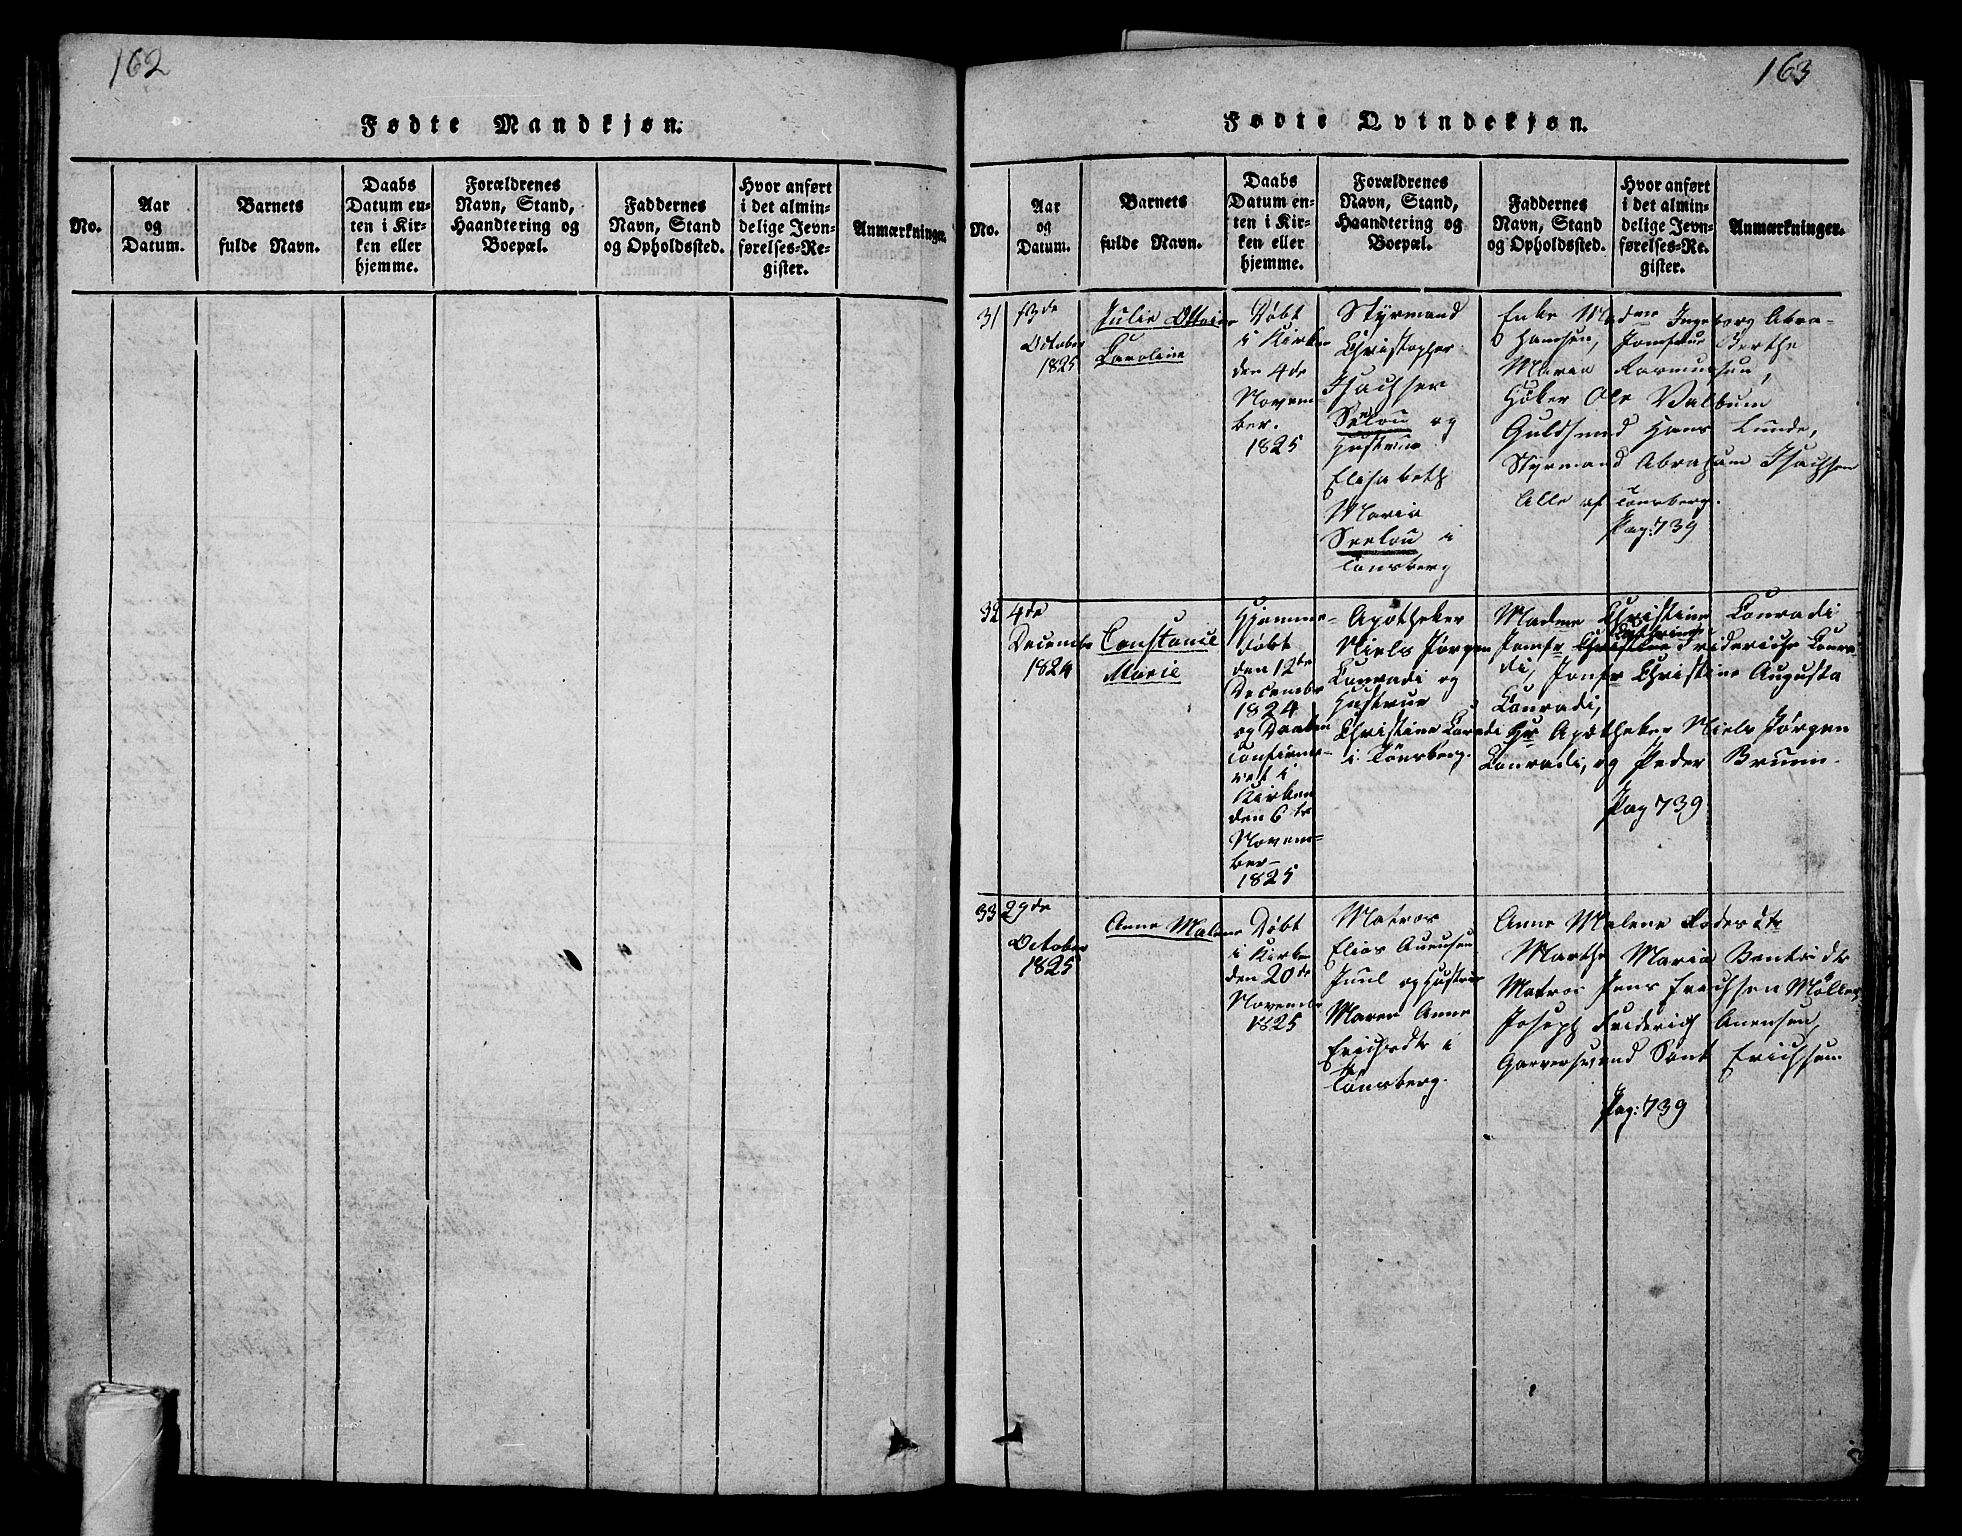 162
Fødte Mandkjøn.
No.
Aar
og
Datum.
Barnets
fulde Navn.
Daabs
Datum en-
ten i Kir-
ken eller
hjemme.
Forældrenes
Navn, Stand,
Haandtering og
Boepæl.
Faddernes
Navn, Stand
og Opholdssted.
Hvor anført
i det almin-
delige Jevn-
førelses-Re-
gister.
Anmærkninger.
163
Fødte Qvindekjøn.
No.
Aar
og
Datum.
Barnets
fulde Navn.
Daabs
Datum en-
ten i Kir-
ken eller
hjemme.
Forældrenes
Navn, Stand,
Haandtering og
Boepæl.
Faddernes
Navn, Stand
og Opholdssted.
Hvor anført
i det almin-
delige Jevn-
førelses-Re-
gister.
Anmærkninger.
31
13de
October
1825
Julie
Caroline
Døbt
i Kirken
den 4de
Novem-
ber.
1825
Styrmand
Christopher
Isachsen
og
Hustrue
Elisabeth
Maria
i
Tønsberg
Enke Madme Ingeborg Abra-
hamsen, Jomfrue Berthe
Maren Rasmussen,
Høker Ole Valbum
Guldsmed Hans Lunde,
Styrmand Abraham Isachsen
Alle af Tønsberg.
Pag: 739
32
4de
Decembr
1824
Constance
Marie
Hjemme-
døbt
den 12te
Decembr
1824
og Daaben
Confirme-
ret i
Kirken
den 6te
Novem-
ber
1825
Apotheker
Niels Jørgen
Conradi og
Hustrue
Christine Conradi
i Tønsberg.
Madme Christine Conradi
Jomfr Cathrine Friderich Conra-
di, Jomfr Christine Augusta
Conradi,
Hr Apotheker Niels Jørgen
Conradi, og Peder Bruun.
Pag 739
33
29de
October
1825
Anne Malene
Døbt
i Kirken
den 20de
Novembr
1825
Matros
Elias Anensen
Juul og Hustrue
Maren Anne
Erichsdtr i
Tønsberg.
Anne Malene
Marthe Maria
Matros Jens Erichsen Møller
Joseph Friderich Anensen,
Garversvend Erichsen
Pag: 739